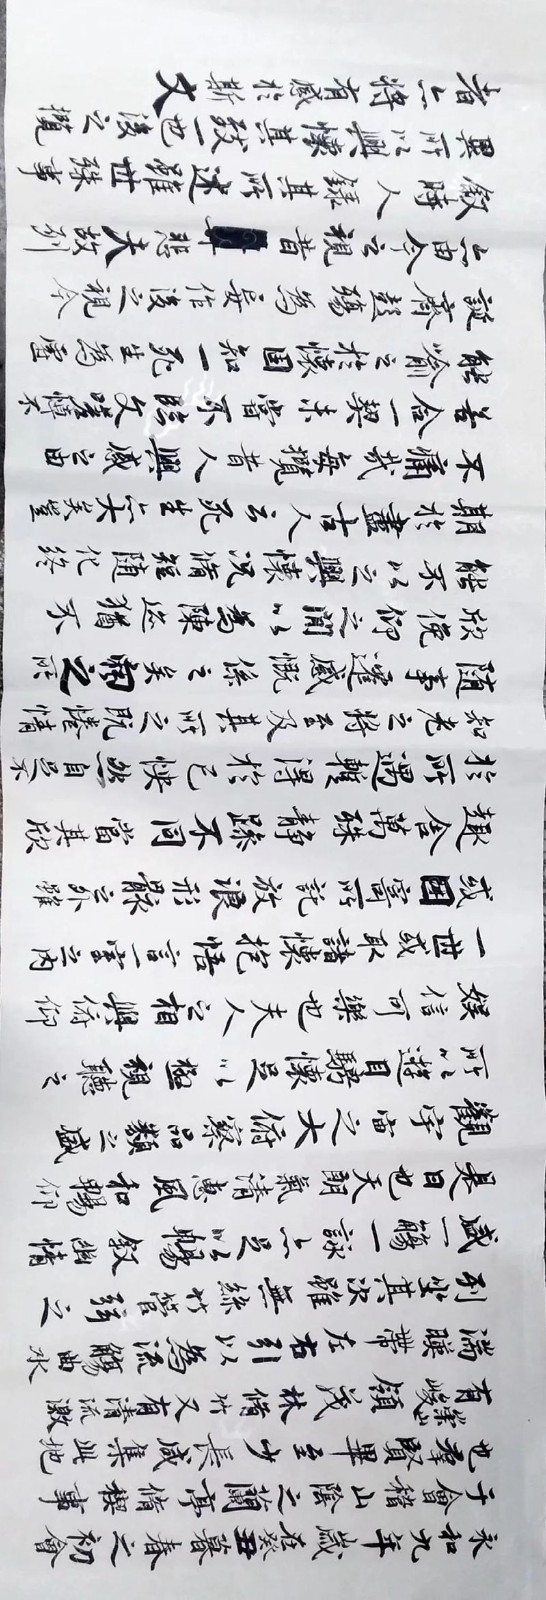 永和九年歲在癸丑暮春之初會
于會稽山陰之蘭亭脩禊事
也群賢畢至少長咸集此地
有崇山峻領茂林脩竹又有清流激
湍暎帶左右引以為流觴曲水
列坐其次雖無絲竹管弦之
盛一觴一詠亦足以暢叙幽情
是日也天朗氣清惠風和暢仰
觀宇宙之大俯察品類之盛
所以遊目騁懷足以極視聽之
娛信可樂也夫人之相與俯仰
一世或取諸懷抱悟言一室之內
或因寄所託放浪形骸之外雖
趣舍萬殊靜躁不同當其欣
於所遇暫得於己怏然自足不
知老之將至及其所之既惓情
隨事遷感慨係之矣向之所
欣俛仰之間以為陳迹猶不
能不以之興懷況脩短隨化終
期於盡古人云死生亦大矣豈
不痛哉每攬昔人興感之由
若合一契未嘗不臨文嗟悼不
能喻之於懷固知一死生為虛
誕齊彭殤為妄作後之視今
亦由今之視昔悲夫故列
叙時人錄其所述雖世殊事
異所以興懷其致一也後之攬
者亦將有感於斯文